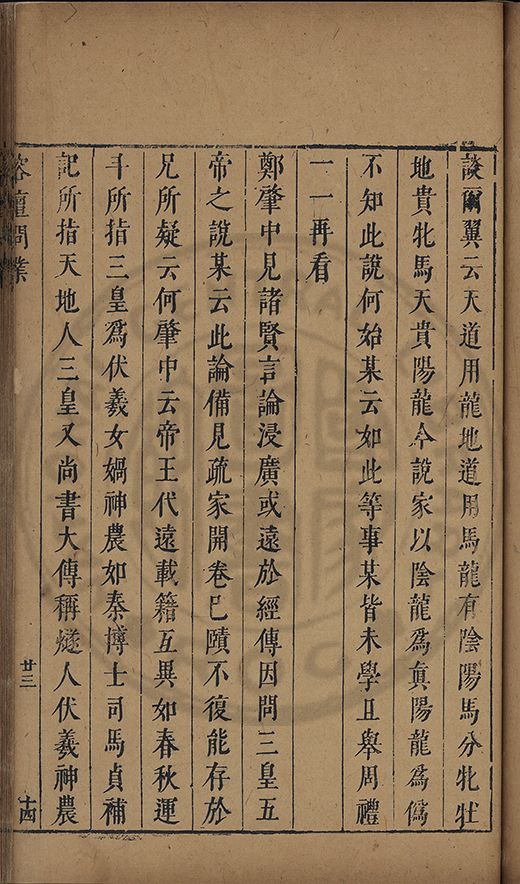 談爾翼云天道用龍地道用馬龍有陰陽馬分牝牡
地貴牝馬天貴陽龍今說家以陰龍爲眞陽龍爲僞
不知此說何始某云如此等事某皆未學且舉周禮
一一再看
鄭肇中見諸賢言論浸廣或遠於經傳因問三皇五
帝之說某云此論備見疏家開卷已賾不復能存於
兄所疑云何肇中云帝王代遠載籍互異如春秋運
斗所指三皇爲伏羲女媧神農如秦博士司馬貞補
記所指天地人三皇又尚書大傳稱燧人伏羲神農
榕壇問業
廿三
十四